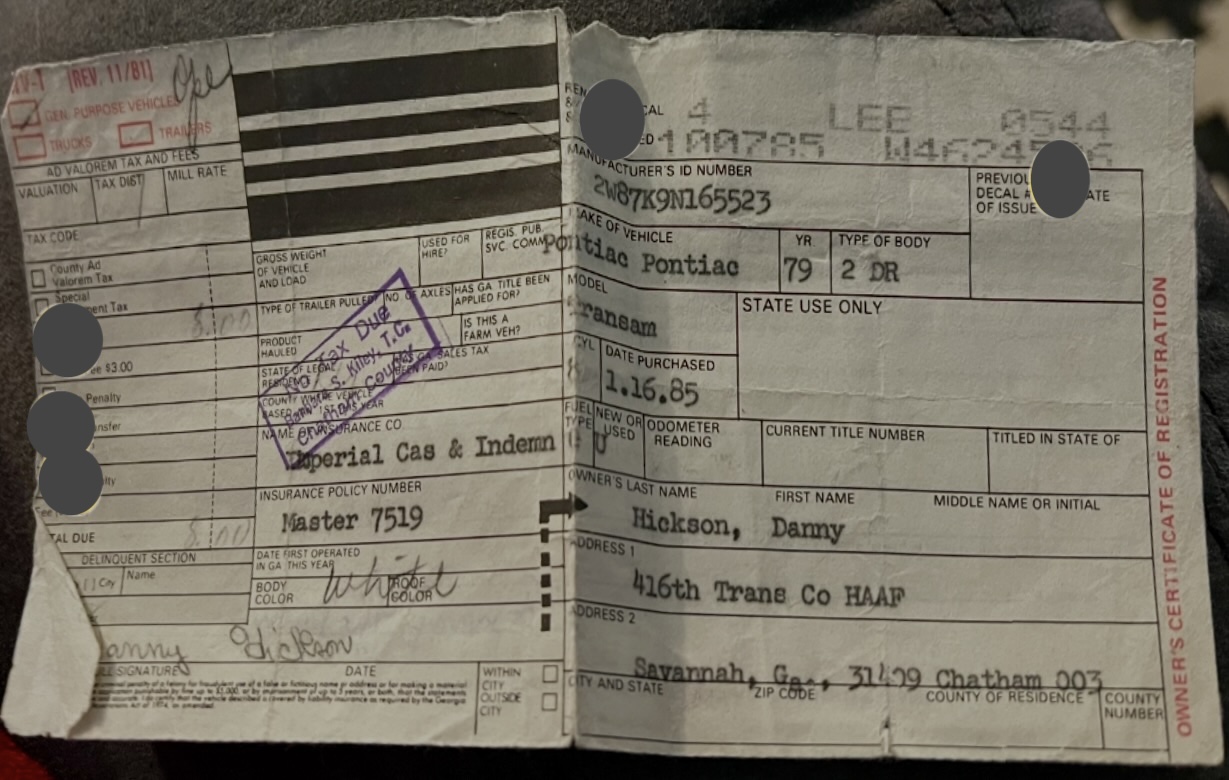 [REV. 11/81]
GEN. PURPOSE VEHICLES
TRUCKS
TRAILERS
AD VALOREM TAX AND FEES
VALUATION
TAX DIST
MILL RATE
TAX CODE
County Ad
Valorem Tax
Special
ent Tax
8.00
ee $3.00
Penalty
TAL DUE
8.00
DELINQUENT SECTION
Name
GROSS WEIGHT
OF VEHICLE
AND LOAD
USED FOR
HIRE?
REGIS. PUB.
SVC. COMM
TYPE OF TRAILER PULLED
NO. OF AXLES
HAS GA TITLE BEEN
APPLIED FOR?
PRODUCT
HAULED
IS THIS A
FARM VEH?
STATE OF LEGAL
RESIDENCE
GA SALES TAX
BEEN PAID?
COUNTY WHERE VEHICLE
BASED
1ST THIS YEAR
No Tax Due
S. Kiley, T.C.
Chatham County
NAME OF INSURANCE CO
Imperial Cas & Indemn
INSURANCE POLICY NUMBER
Master 7519
DATE FIRST OPERATED
IN GA THIS YEAR
BODY
COLOR
White
ROOF
COLOR
anny Hickson
SIGNATURE
DATE
WITHIN
CITY
OUTSIDE
CITY
CAL
4
LEE
0544
ED
100785
MANUFACTURER'S ID NUMBER
2W87K9N165523
PREVIOU
DECAL #
ATE
OF ISSUE
MAKE OF VEHICLE
Pontiac Pontiac
YR.
79
TYPE OF BODY
2 DR
MODEL
Transam
STATE USE ONLY
CYL
8
DATE PURCHASED
1.16.85
FUEL
TYPE
NEW OR
USED
U
ODOMETER
READING
CURRENT TITLE NUMBER
TITLED IN STATE OF
OWNER'S LAST NAME
FIRST NAME
MIDDLE NAME OR INITIAL
Hickson, Danny
ADDRESS 1
416th Trans Co HAAF
ADDRESS 2
Savannah, Ga., 31409 Chatham 003
CITY AND STATE
ZIP CODE
COUNTY OF RESIDENCE
COUNTY
NUMBER
OWNER'S CERTIFICATE OF REGISTRATION